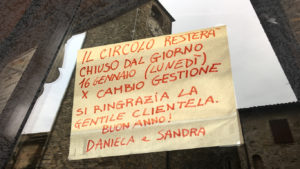 IL CIRCOLO RESTERÀ
CHIUSO DAL GIORNO
16 GENNAIO (LUNEDÌ)
X CAMBIO GESTIONE
SI RINGRAZIA LA
GENTILE CLIENTELA.
BUON ANNO!
DANIELA e SANDRA